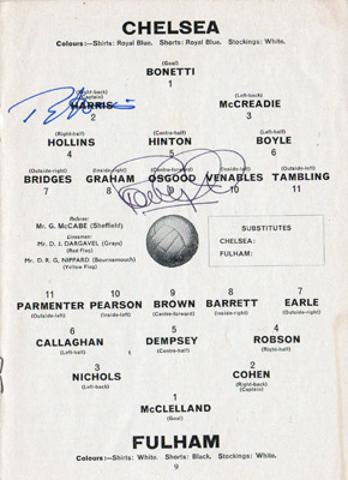 CHELSEA
Colours:—Shirts: Royal Blue. Shorts: Royal Blue. Stockings: White.
(Goal)
BONETTI
1
(Right-back)
(Captain)
(Left-back)
HARRIS
McCREADIE
2
3
(Right-half)
(Centre-half)
(Left-half)
HOLLINS
HINTON
BOYLE
4
5
6
(Outside-right)
(Inside-right)
(Centre-forward)
(Inside-left)
(Outside-left)
BRIDGES
GRAHAM
OSGOOD
VENABLES
TAMBLING
7
8
9
10
11
Referee:
Mr. G. McCABE (Sheffield)
Linesmen:
Mr. D. J. DARGAVEL (Grays)
(Red Flag)
Mr. D. R. G. NIPPARD (Bournemouth)
(Yellow Flag)
SUBSTITUTES
CHELSEA:
FULHAM:
11
10
9
8
7
PARMENTER
PEARSON
BROWN
BARRETT
EARLE
(Outside-left)
(Inside-left)
(Centre-forward)
(Inside-right)
(Outside-right)
6
5
4
CALLAGHAN
DEMPSEY
ROBSON
(Left-half)
(Centre-half)
(Right-half)
3
2
NICHOLS
COHEN
(Left-back)
(Right-back)
(Captain)
1
McCLELLAND
(Goal)
FULHAM
Colours:—Shirts: White. Shorts: Black. Stockings: White.
9